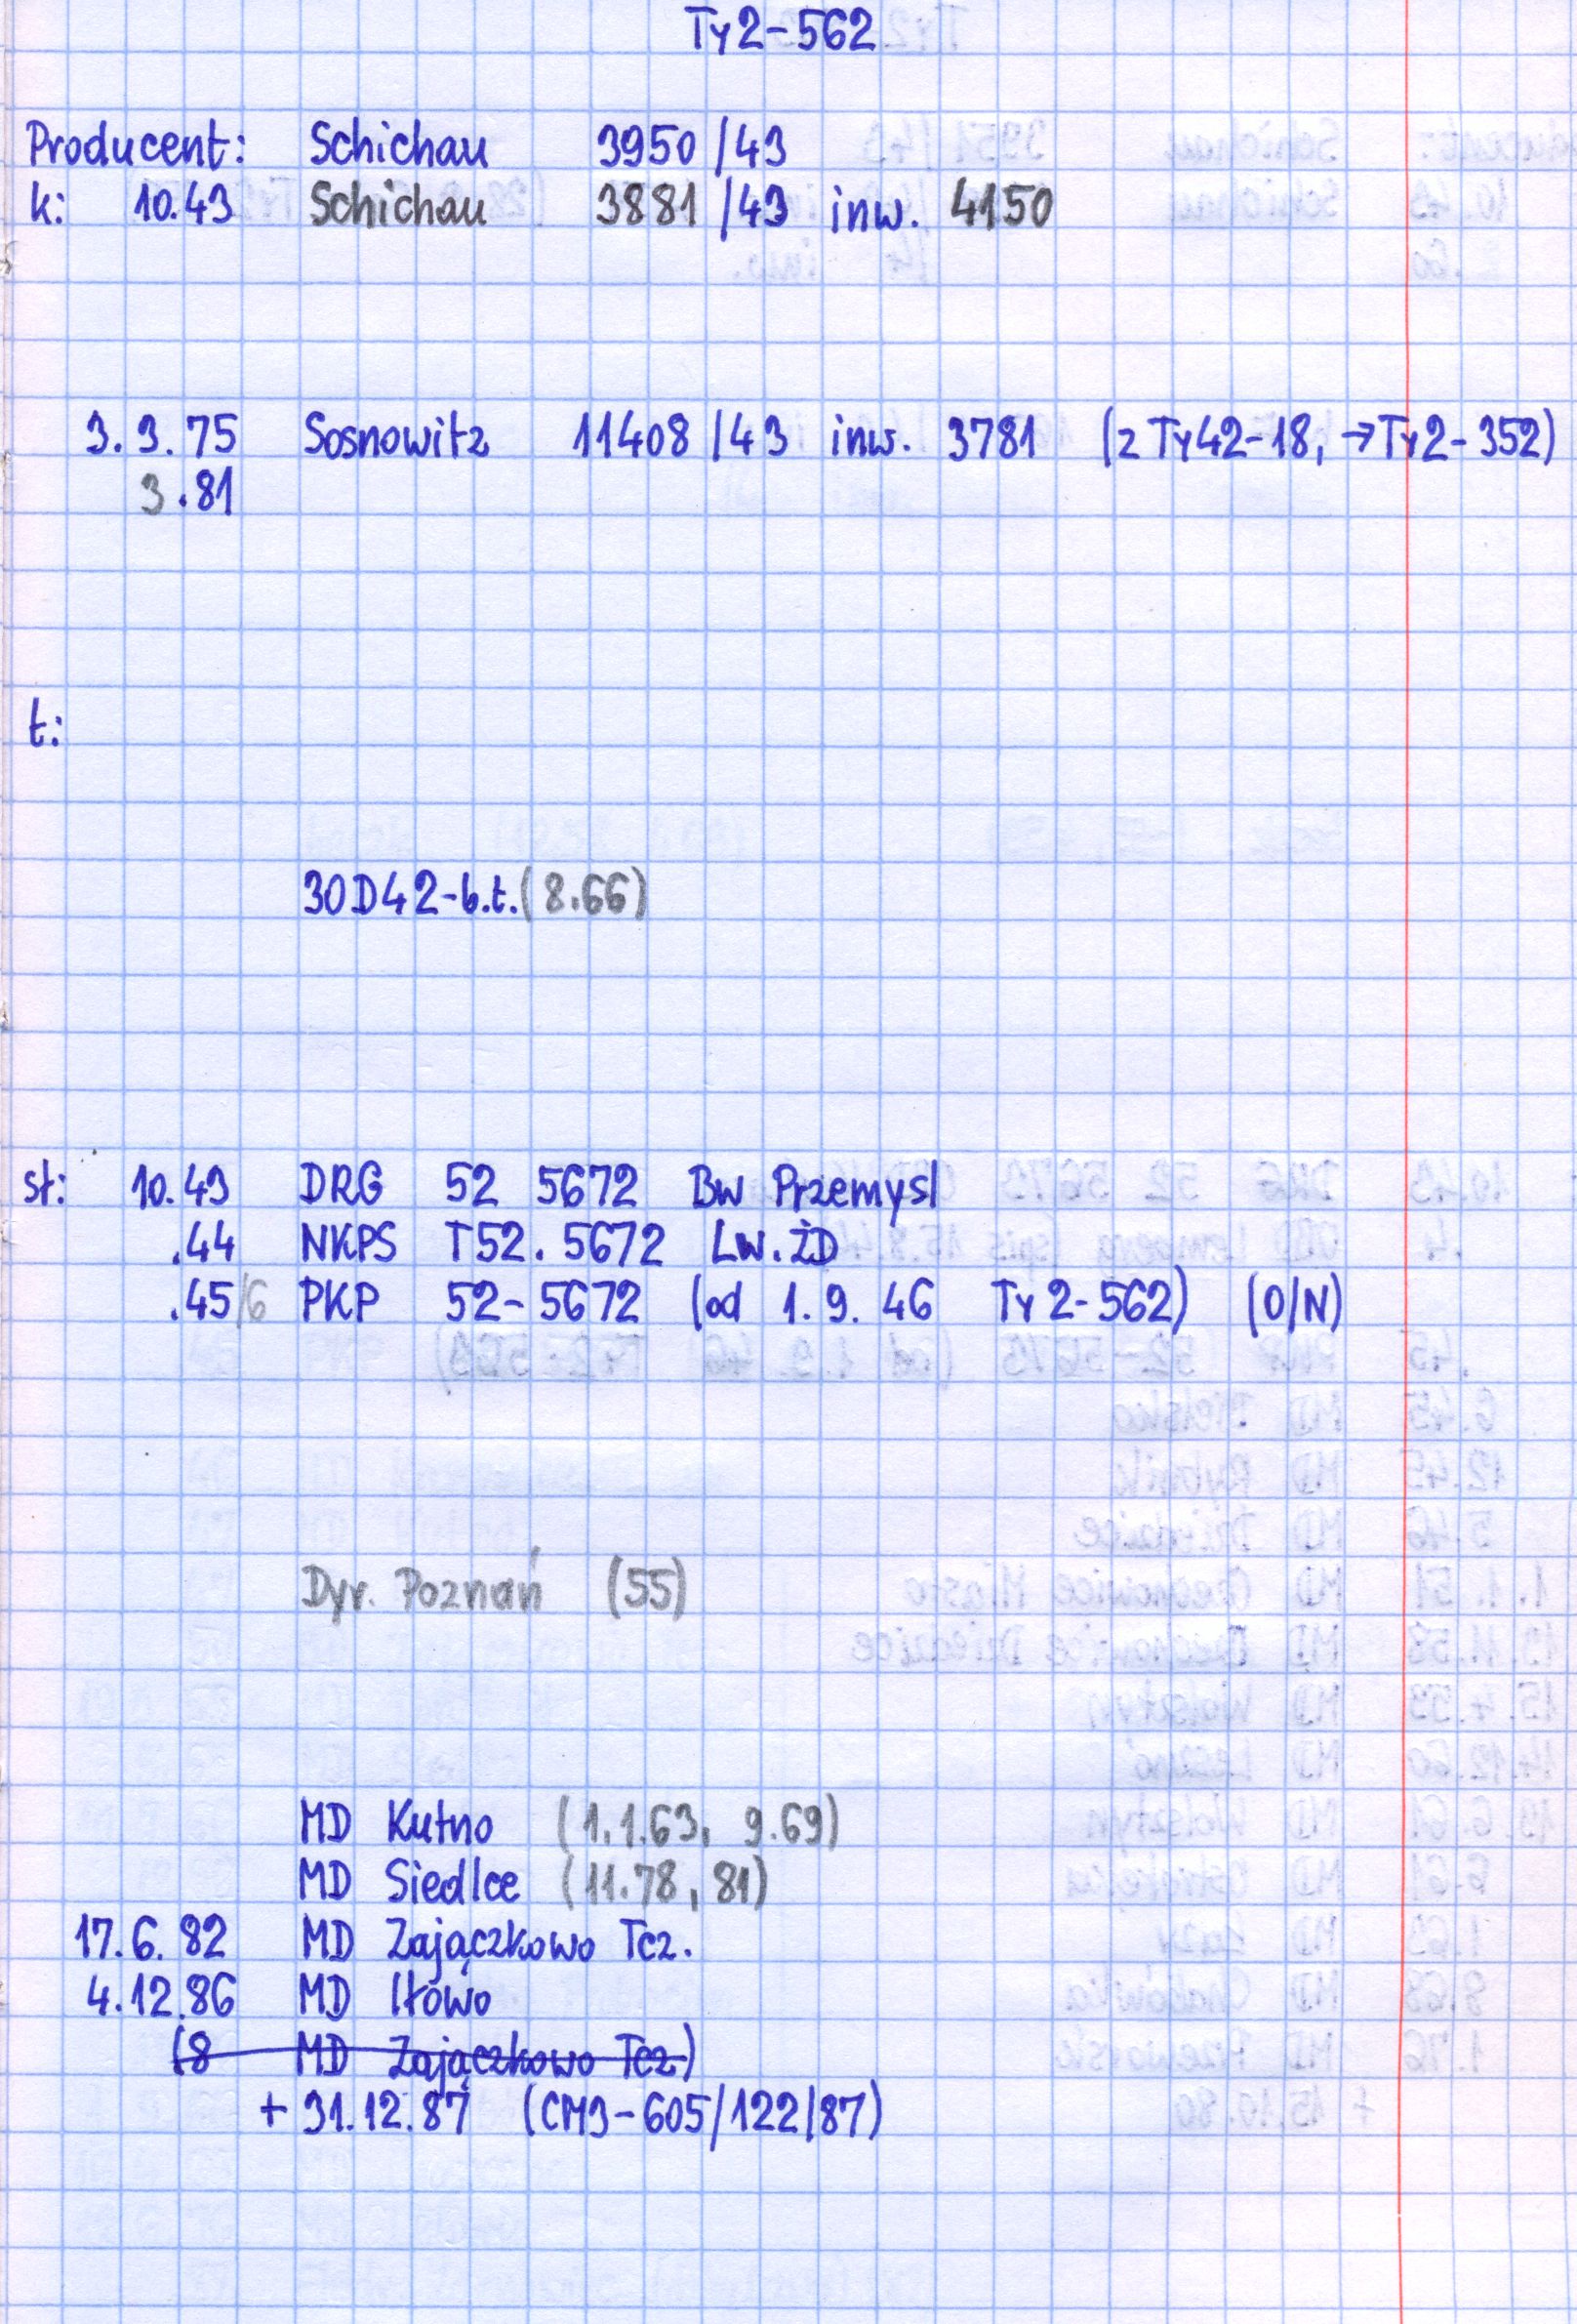 Ty2-562
Producent: Schichau 3950/43
k: 10.43 Schichau 3881/43 inw. 4150
3.3.75 Sosnowitz 11408/43 inw. 3781 (z Ty42-18, →Ty2-352)
3.81
t:
30D42-b.t.(8.66)
st: 10.43 DRG 52 5672 Bw Przemysl
.44 NKPS T52.5672 Lw.ŻD
.45/6 PKP 52-5672 (od 1.9.46 Ty2-562) (O/N)
Dyr. Poznań (55)
MD Kutno (1.1.63, 9.69)
MD Siedlce (11.78, 81)
17.6.82 MD Zajączkowo Tcz.
4.12.86 MD Iłowo
(8 MD Zajączkowo Tcz)
+ 31.12.87 (CM3-605/122/87)